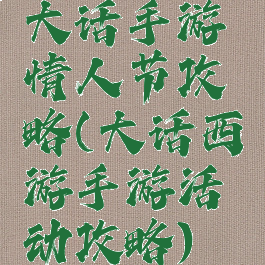 大话手游
情人节攻
略(大话西
游手游活
动攻略)